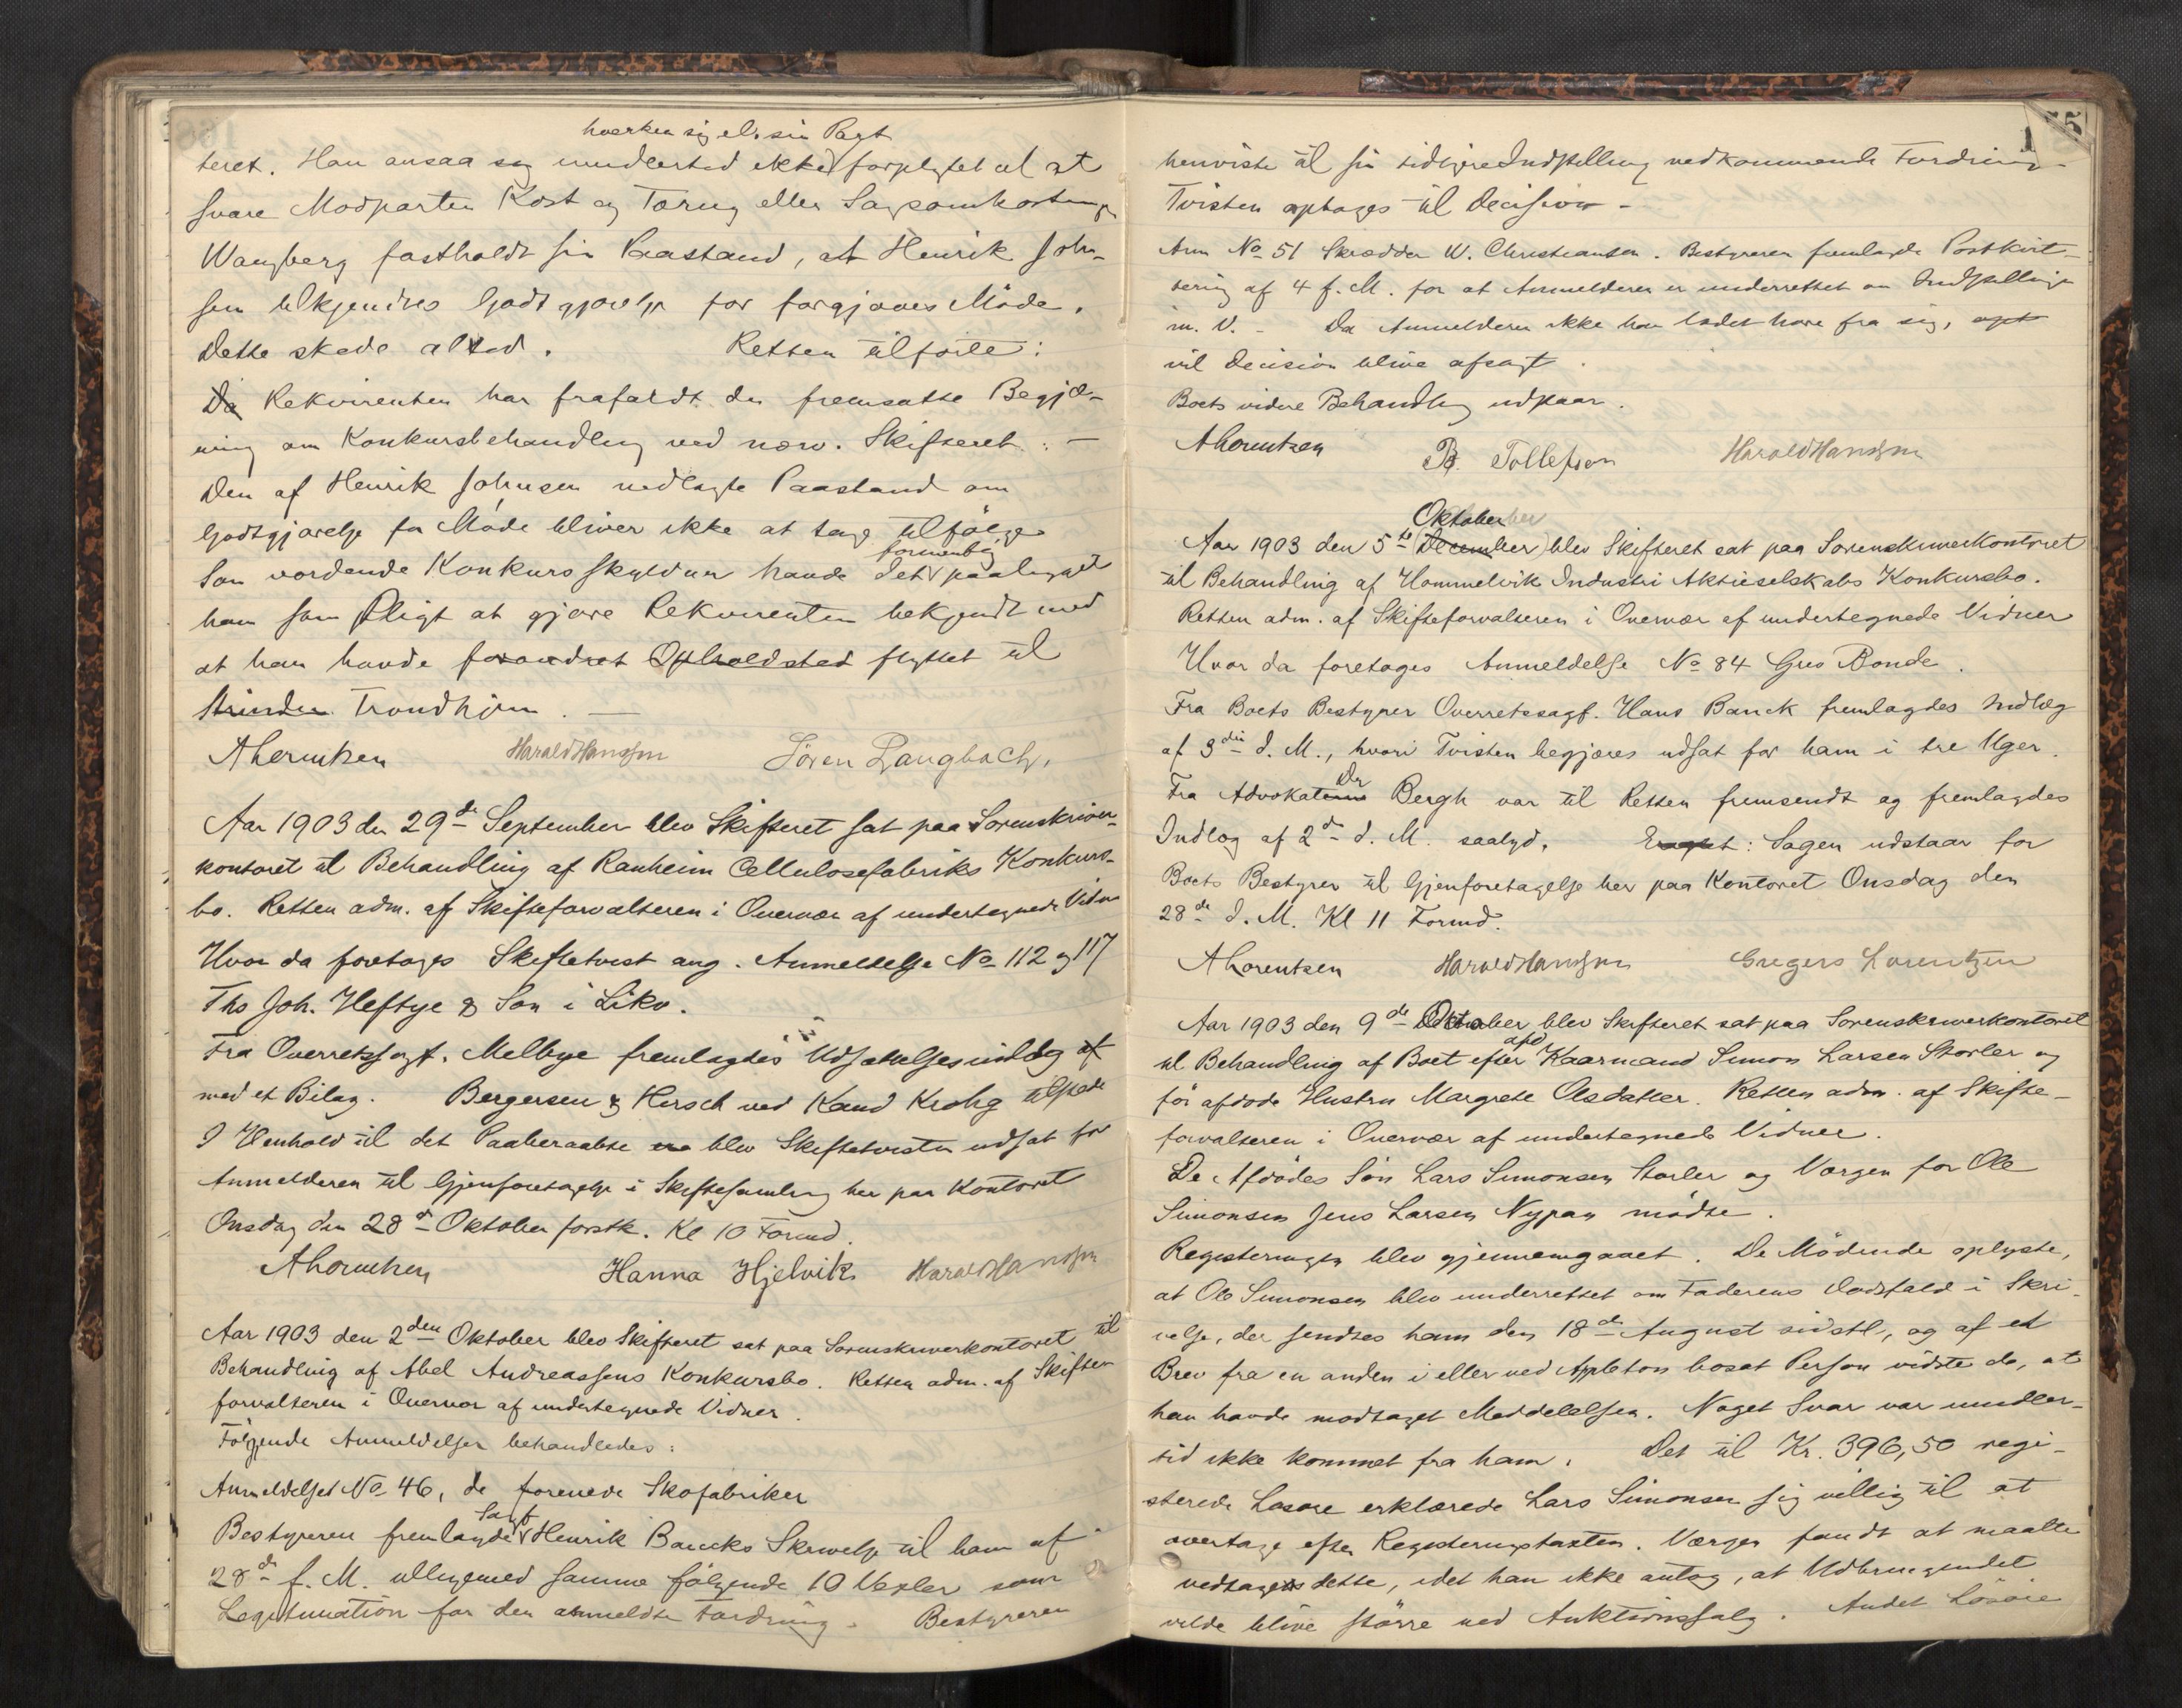 hverken sig el. sin Part
teret. Han ansaa seg imidlertid ikke forpligtet til at
svare Modparten Kost og Tæring eller Sagsomkostninger
Wangberg fastholdt sin Paastand, at Henrik John-
sen tilkjendtes Godtgjørelse for forgjæves Møde.
Dette skede altsd. Retten tilførte:
Da Rekvirenten har frafaldt den fremsatte Begjæ-
ring om Konkursbehandling ved nærv. Skifteret: —
Den af Henrik Johnsen nedlagte Paastand om
Godtgjørelse for Møde bliver ikke at tage tilfølge
formentlig
Som vordende Konkursskyldner havde det paaligget
ham som Pligt at gjøre Rekvirenten bekjendt med
at han havde forandret Opholdsted flyttet til
Strinden Trondhjem. —
ALorentzen HaraldHanssen Sören Langbach,
Aar 1903 den 29de September blev Skifteret sat paa Sorenskriver-
kontoret til Behandling af Ranheim Cellulosefabriks Konkurs-
bo. Retten adm. af Skifteforvalteren i Overvær af undertegnede Vidner
Hvor da foretoges Skiftetvist ang. Anmeldelse No 112 og 117
Ths Joh. Heftye & Søn i Likv.
Fra Overretssagf. Melbye fremlagdes Udsættelsesindlæg af
med et Bilag. Bergersen & Hersch ved Kand Krohg tilstede
I Henhold til det Paaberaabte blev Skiftetvisten udsat for
Anmelderen til Gjenforetagelse i Skiftesamling her paa Kontoret
Onsdag den 28de Oktober førstk. Kl 10 Formd.
ALorentzen Hanna Hjelvik HaraldHanssen
Aar 1903 den 2den Oktober blev Skifteret sat paa Sorenskriverkontoret til
Behandling af Abel Andreassens Konkursbo. Retten adm. af Skifte-
forvalteren i Overvær af undertegnede Vidner.
Følgende Anmeldelser behandledes:
Anmeldelse No 46, de forenede Skofabriker
Sagf
Bestyreren fremlagde Henrik Baucks Skrivelse til ham af
28de f. M. tilligemed samme følgende 10 Vexler som
Legitimation for den anmeldte Fordring. Bestyreren
155
henviste til sin tidligere Indstilling vedkommende Fordring-
Tvisten optoges til Decision-
Anm No 51 Skrædder W. Christiansen. Bestyreren fremlagde Postkvit-
tering af 4 f. M. for at Anmelderen er underrettet om Indstillingen
m. V. - Da Anmelderen ikke har ladet høre fra sig, opt
vil Decision blive afsagt.
Boets videre Behandling udstaar.
ALorentzen B. Tollefsen HaraldHanssen
Oktober
Aar 1903 den 5te December blev Skifteret sat paa Sorenskriverkontoret
til Behandling af Hommelvik Industri Aktieselskabs Konkursbo.
Retten adm. af Skifteforvalteren i Overvær af undertegnede Vidner
Hvor da foretoges Anmeldelse No 84 Gres Bonde.
Fra Boets Bestyrer Overretssagf. Hans Bauck fremlagdes Indlæg
af 3die d. M., hvori Tvisten begjæres udsat for ham i tre Uger.
Fra Advokaterne Bergh var til Retten fremsendt og fremlagdes
Indlæg af 2de d. M. saalyd. Eragtet: Sagen udstaar for
Boets Bestyrer til Gjenforetagelse her paa Kontoret Onsdag den
28de d. M. Kl 11 Formd.
ALorentzen HaraldHanssen Gregers Lorentzen
Aar 1903 den 9de Oktober blev Skifteret sat paa Sorenskriverkontoret
afd
til Behandling af Boet efter Kaarmand Simon Larsen Storler og
før afdøde Hustru Margrete Olsdatter. Retten adm. af Skifte-
forvalteren i Overvær af undertegnede Vidner.
De Afdødes Søn Lars Simonsen Storler og Værgen for Ole
Simonsen Jens Larsen Nypan mødte.
Registeringen blev gjennemgaaet. De Mødende oplyste,
at Ole Simonsen blev underrettet om Faderens Dødsfald i Skri-
velse, der sendtes ham den 18de August sidstl., og af et
Brev fra en anden i eller ved Appleton bosat Person vidste de, at
han havde modtaget Meddelelsen. Noget Svar var imidler-
tid ikke kommet fra ham. Det til Kr. 396,50 regi-
sterede Løsøre erklærede Lars Simonsen sig villig til at
overtage efter Registeringstaxten. Værgen fandt at maatte
vedtage dette, idet han ikke antog, at Udbringendet
vilde blive større ved Auktionssalg. Andet Løsøre